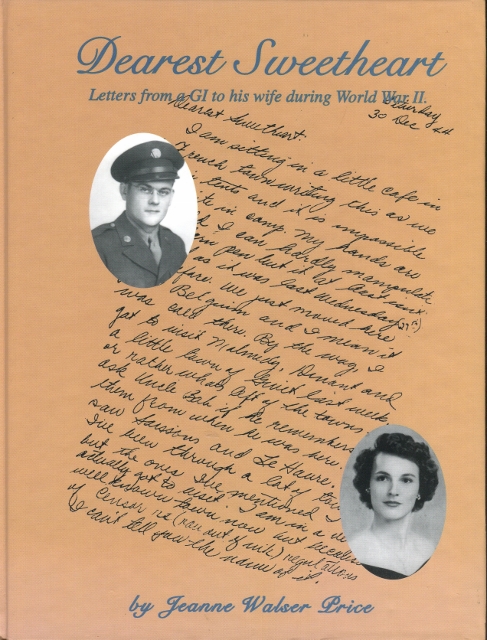 Dearest Sweetheart
Letters from a GI to his wife during World War II.
Saturday
30 Dec 44
Dearest Sweetheart:
I am sitting in a little cafe in
French town writing this as we
tents and it is impossible
in camp. My hands are
I can hardly manipulate
pen but it at least isn't
as it was last Wednesday (27th)
fore. We just moved here
Belguim and I mean it
was cold there. By the way, I
got to visit Malmedy, Dinant and
a little town of Givet last week
or rather what's left of the towns
ask Uncle Bob if he remembers
them from when he was here.
saw Soissons and Le Havre.
I've been through a lot of
but the ones I've mentioned I
actually got to visit. I am in a
well known town now but because
of Censor ns (non out of nile) regulations
I can't tell you the name of it.
by Jeanne Walser Price